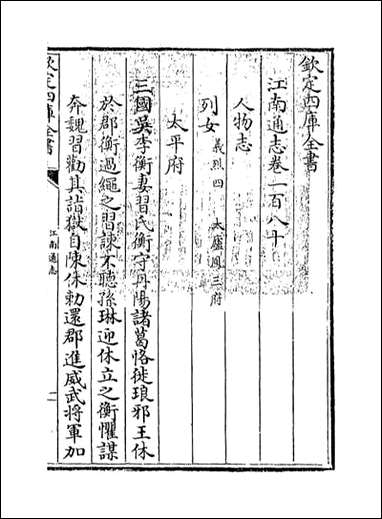 欽定四庫全書
江南通志卷一百八十
人物志
列女 義烈四 太廬鳳三府
太平府
三國吳李衡妻習氏衡守丹陽諸葛恪徙琅邪王休
於郡衡過繩之習諫不聽孫琳迎休立之衡懼謀
奔魏習勸其詣獄自陳休勅還郡進威武將軍加
欽定四庫全書
江南通志
一